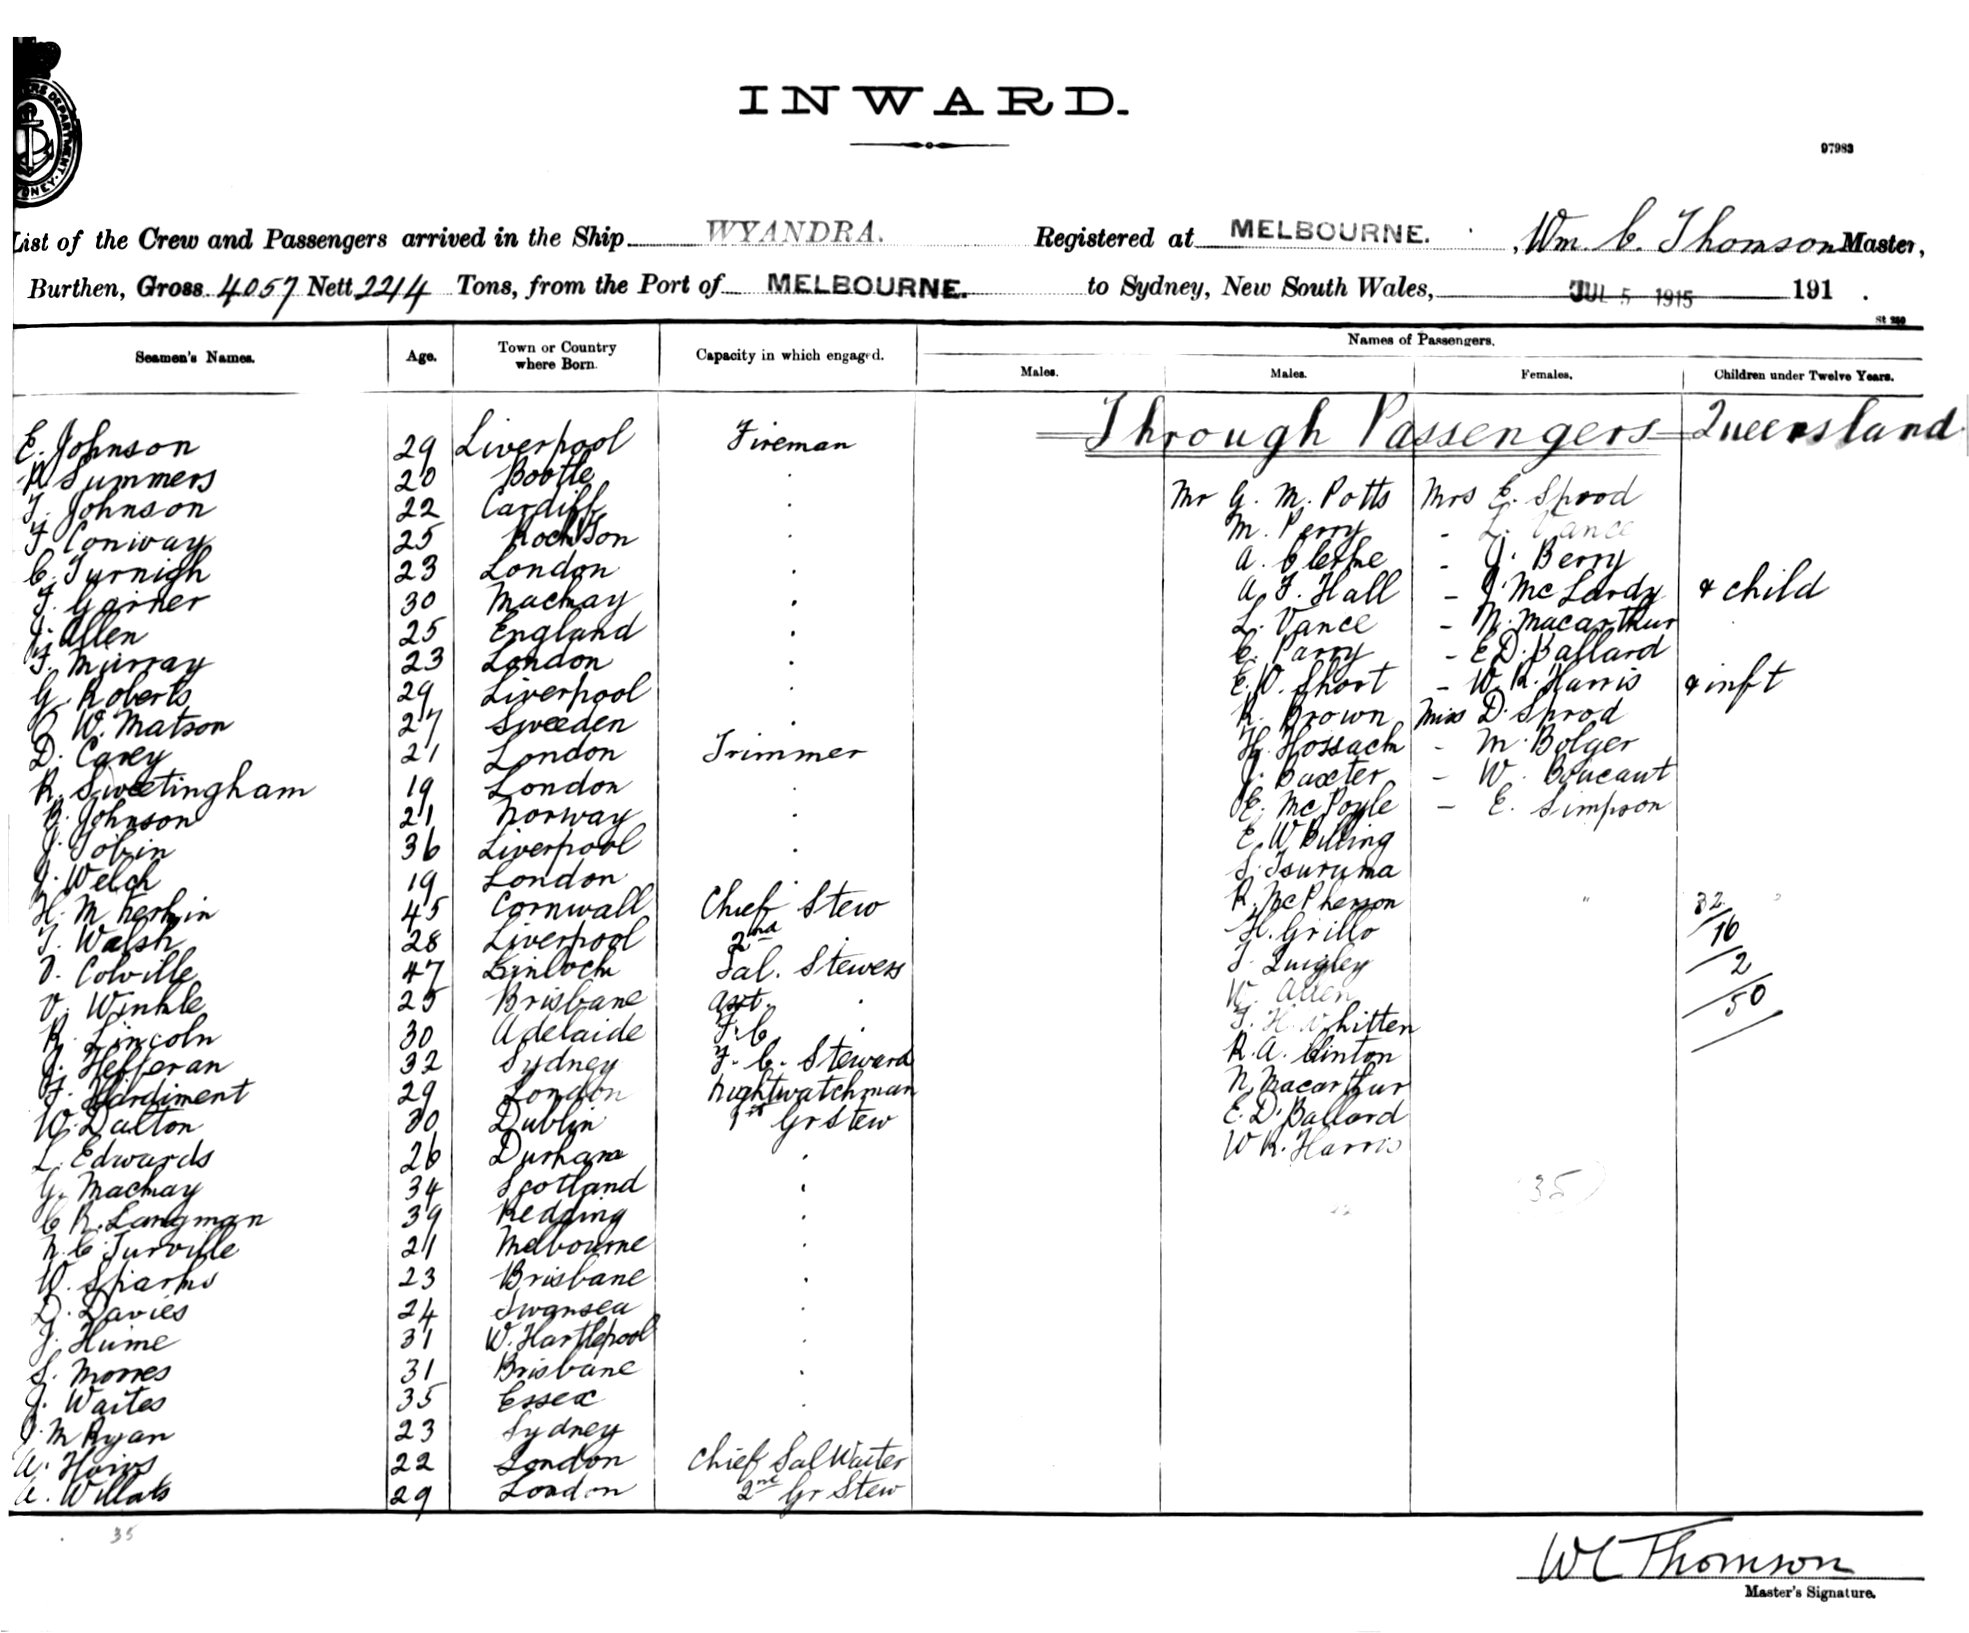 INWARD.
97983
List of the Crew and Passengers arrived in the Ship WYANDRA. Registered at MELBOURNE. , Wm. C. Thomson Master,
Burthen, Gross 4057 Nett 2214 Tons, from the Port of MELBOURNE. to Sydney, New South Wales, JUL 5 1915 191 .
St 280
Seamen's Names. Age. Town or Country where Born. Capacity in which engaged. Names of Passengers.
Males. Males. Females. Children under Twelve Years.
Through Passengers Queensland
E. Johnson 29 Liverpool Fireman
R Summers 20 Bootle .
T. Johnson 22 Cardiff . Mr G. M. Potts Mrs E. Sprod
F Conway 25 . M. Perry - L. Vance
C. Turnigh 23 London . A. Clethe - J. Berry
F. Garner 30 Mackay . A. F. Hall - J. McLardy & child
J. Allen 25 England . L. Vance - N. Macarthur
F. Murray 23 London . C. Parry - E D. Ballard
G. Roberts 29 Liverpool . E. W. Short - W. R. Harris & inft
W. Matson 27 Sweeden . R. Brown Miss D. Sprod
D. Carey 21 London Trimmer H. Hossack - M. Bolger
R. Sweetingham 19 London . J. Baxter - W. Boucaut
G. Johnson 21 Norway . E. McPoyle - E. Simpson
J. Tobin 36 Liverpool . E. W Billing
J. Welch 19 London . S. Tsuruma
H. M 45 Cornwall Chief Stew R. McPherson 32
T. Walsh 28 Liverpool 2nd . H. Grillo 16
V. Colville 47 Kinloch Sal. Stewess T. Quigley 2
V. Winkle 25 Brisbane Asst. . W. Allen 50
R. Lincoln 30 Adelaide F. C . T. H. Whitten
J. Hefferan 32 Sydney F. C. Steward R. A. Clinton
F. Hardiment 29 London Nightwatchman N. Macarthur
W. Dalton 30 Dublin 1st Gr Stew E. D. Ballard
L. Edwards 26 Durham . W R. Harris
G. Mackay 34 Scotland . 35
C R. Langman 39 Redding .
N. C. Turville 21 Melbourne .
W. Sparks 23 Brisbane .
D. Davies 24 Swansea .
J. Hume 31 W. Hartlepool .
S. Morres 31 Brisbane .
J. Waites 35 Essex .
J. M Ryan 23 Sydney .
A. 22 London Chief Sal Waiter
A. Willats 29 London 2nd Gr Stew
35
W C Thomson
Master's Signature.